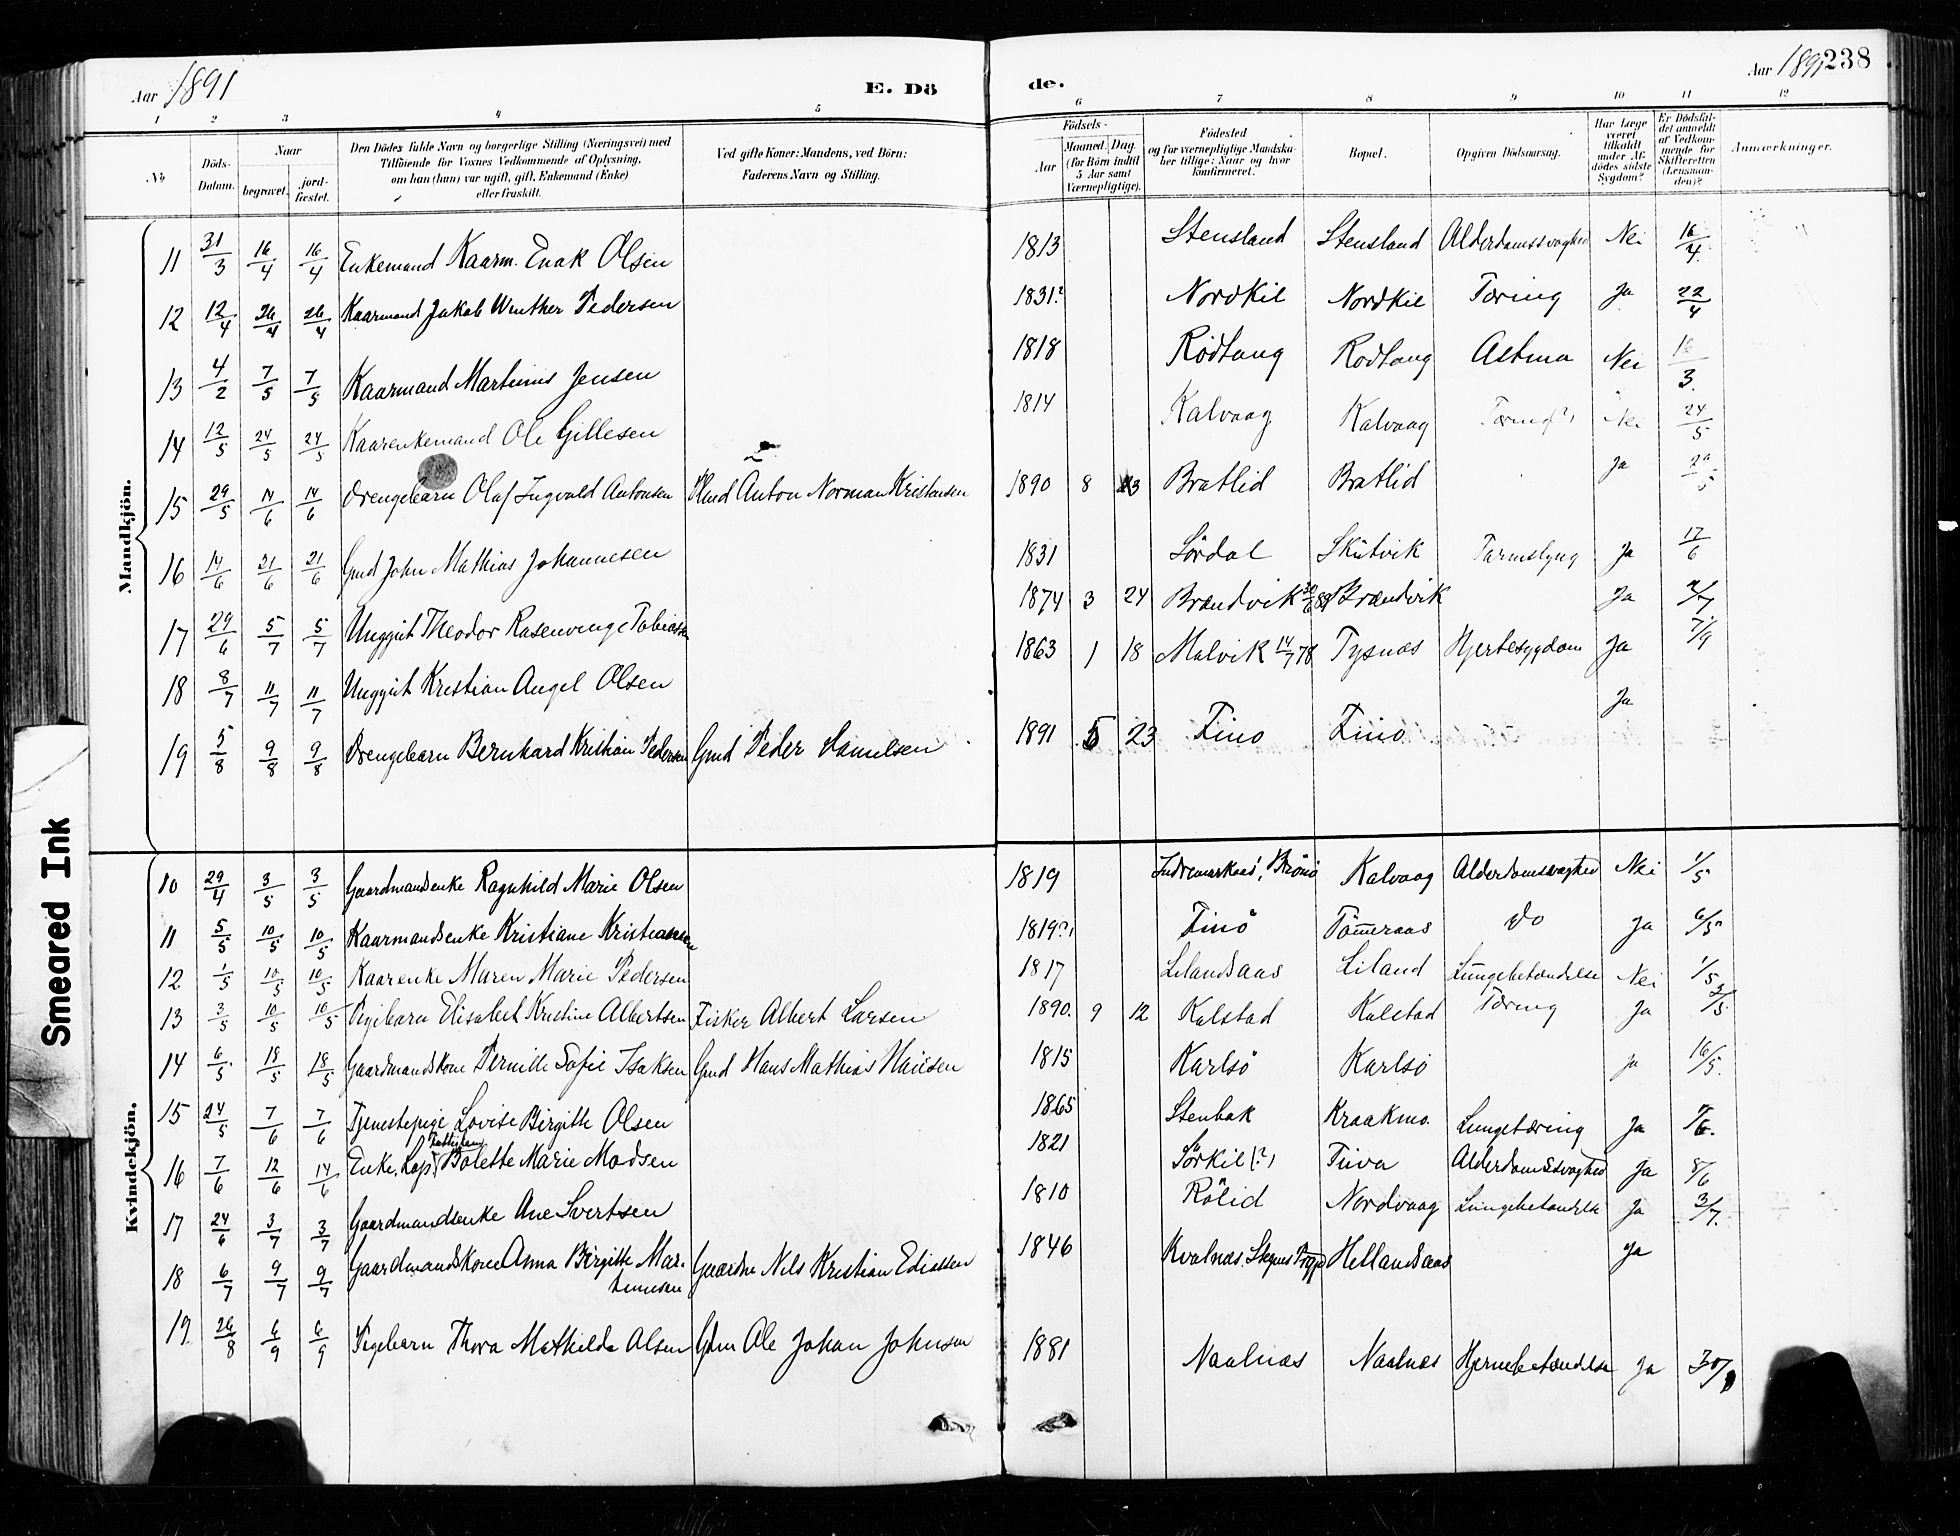 Aar 1891
E. Dö
de.
Aar 1891
238
1 2 3 4 5 6 7 8 9 10 11 12
No
Döds-Datum.
Naar
begravet.
jord-fæstet.
Den Dödes fulde Navn og borgerlige Stilling (Næringsvei) med
Tilföiende for Voxnes Vedkommende af Oplysning,
om han (hun) var ugift, gift, Enkemand (Enke)
eller fraskilt.
Ved gifte Koner: Mandens, ved Börn:
Faderens Navn og Stilling.
Födsels-
Aar
Maaned. Dag.
(for Börn indtil
5 Aar samt
Værnepligtige).
Födested
og for værnepligtige Mandska-
ber tillige: Naar og hvor
konfirmeret.
Bopæl.
Opgiven Dödsaarsag.
Har Læge
været
tilkaldt
under Af-
dödes sidste
Sygdom?
Er Dödsfal-
det anmeldt
af Vedkom-
mende for
Skifteretten
(Lensman-
den)?
Anmærkninger.
Mandkjön.
11 31/3 16/4 16/4 Enkemand Kaarm. Enok Olsen 1813 Stensland Stensland Alderdomssvaghed Nei 16/4
12 12/4 26/4 26/4 Kaarmand Jakob Winther Pedersen 1831? Nordkil Nordkil Tæring Ja 22/4
13 4/2 7/5 7/5 Kaarmand Martinus Jensen 1818 Rödtang Rodtang Astma Nei 3
14 12/5 24/5 24/5 Kaarenkemand Ole Gillesen 1814 Kalvaag Kalvaag Tæring(?) Nei 24/5
15 29/5 14/6 14/6 Drengebarn Olaf Ingvald Antonsen Anton Norman Kristensen 1890 8 Bratlid Bratlid Ja 29/5
16 14/6 21/6 21/6 Gmd John Mathias Johannesen 1831 Sördal Skutvik Tarmslyng Ja 17/6
17 29/6 5/7 5/7 Unggut Theodor Rosenvinge Tobiassen 1874 3 24 Brændvik Brændvik Ja 2/7
18 8/7 11/7 11/7 Unggut Kristian Angel Olsen 1863 1 18 Malvik Tysnæs Hjertesygdom Ja
Ja
19 5/8 9/8 9/8 Drengebarn Bernhard Kristian Pedersen Gmd Peder Samuelsen 1891 5 23 Finö Finö
Kvindekjön.
10 29/4 3/5 3/5 Gaardmandsenke Ragnhild Marie Olsen 1819 Kalvaag Alderdomssvaghed Nei 1/5
11 5/5 10/5 10/5 Kaarmandsenke Kristiane Kristiansen 1819?, Finö Tömeraas do Ja 6/5
12 1/5 10/5 10/5 Kaarenke Maren Marie Pedersen 1817 Lilandsaas Liland Lungebetændelse Nei 1/5
13 3/5 10/5 10/5 Pigebarn Elisabet Kristine Albertsen Fisker Albert Larsen 1890. 9 12 Kalstad Kalstad Tæring Ja 3/5
14 6/5 18/5 18/5 Gaardmandskone Pernille Sofie Isaksen Gmd Hans Mathias Hansen 1815 Karlsö Karlsö Ja 16/5.
15 24/5 7/6 7/6 Tjenestepige Lovise Birgitte Olsen 1865 Stenbak Kraakmo. Lungetæring Ja
16 7/6 12/6 14/6 Enke, Lap, Fattiglem Bolette Marie Madsen 1821 Sörkil (?) Tüva Alderdomssvaghed Ja 8/6
17 24/6 3/7 3/7 Gaardmandsenke Ane Sivertsen 1810 Rölid Nordvaag Lungebetændelse Ja 3/7.
18 6/7 9/7 9/7 Gaardmandskone Anna Birgitte Mar-
tinusen Nils Kristian Ediassen 1846 Kvalnæs, Hellandsaas Ja
19 26/8 6/9 6/9 Pigebarn Thora Mathilde Olsen Gdm Ole Johan Johnsen 1881 Naalnæs Naalnæs Hjernebetændelse Ja
Sneared Ink